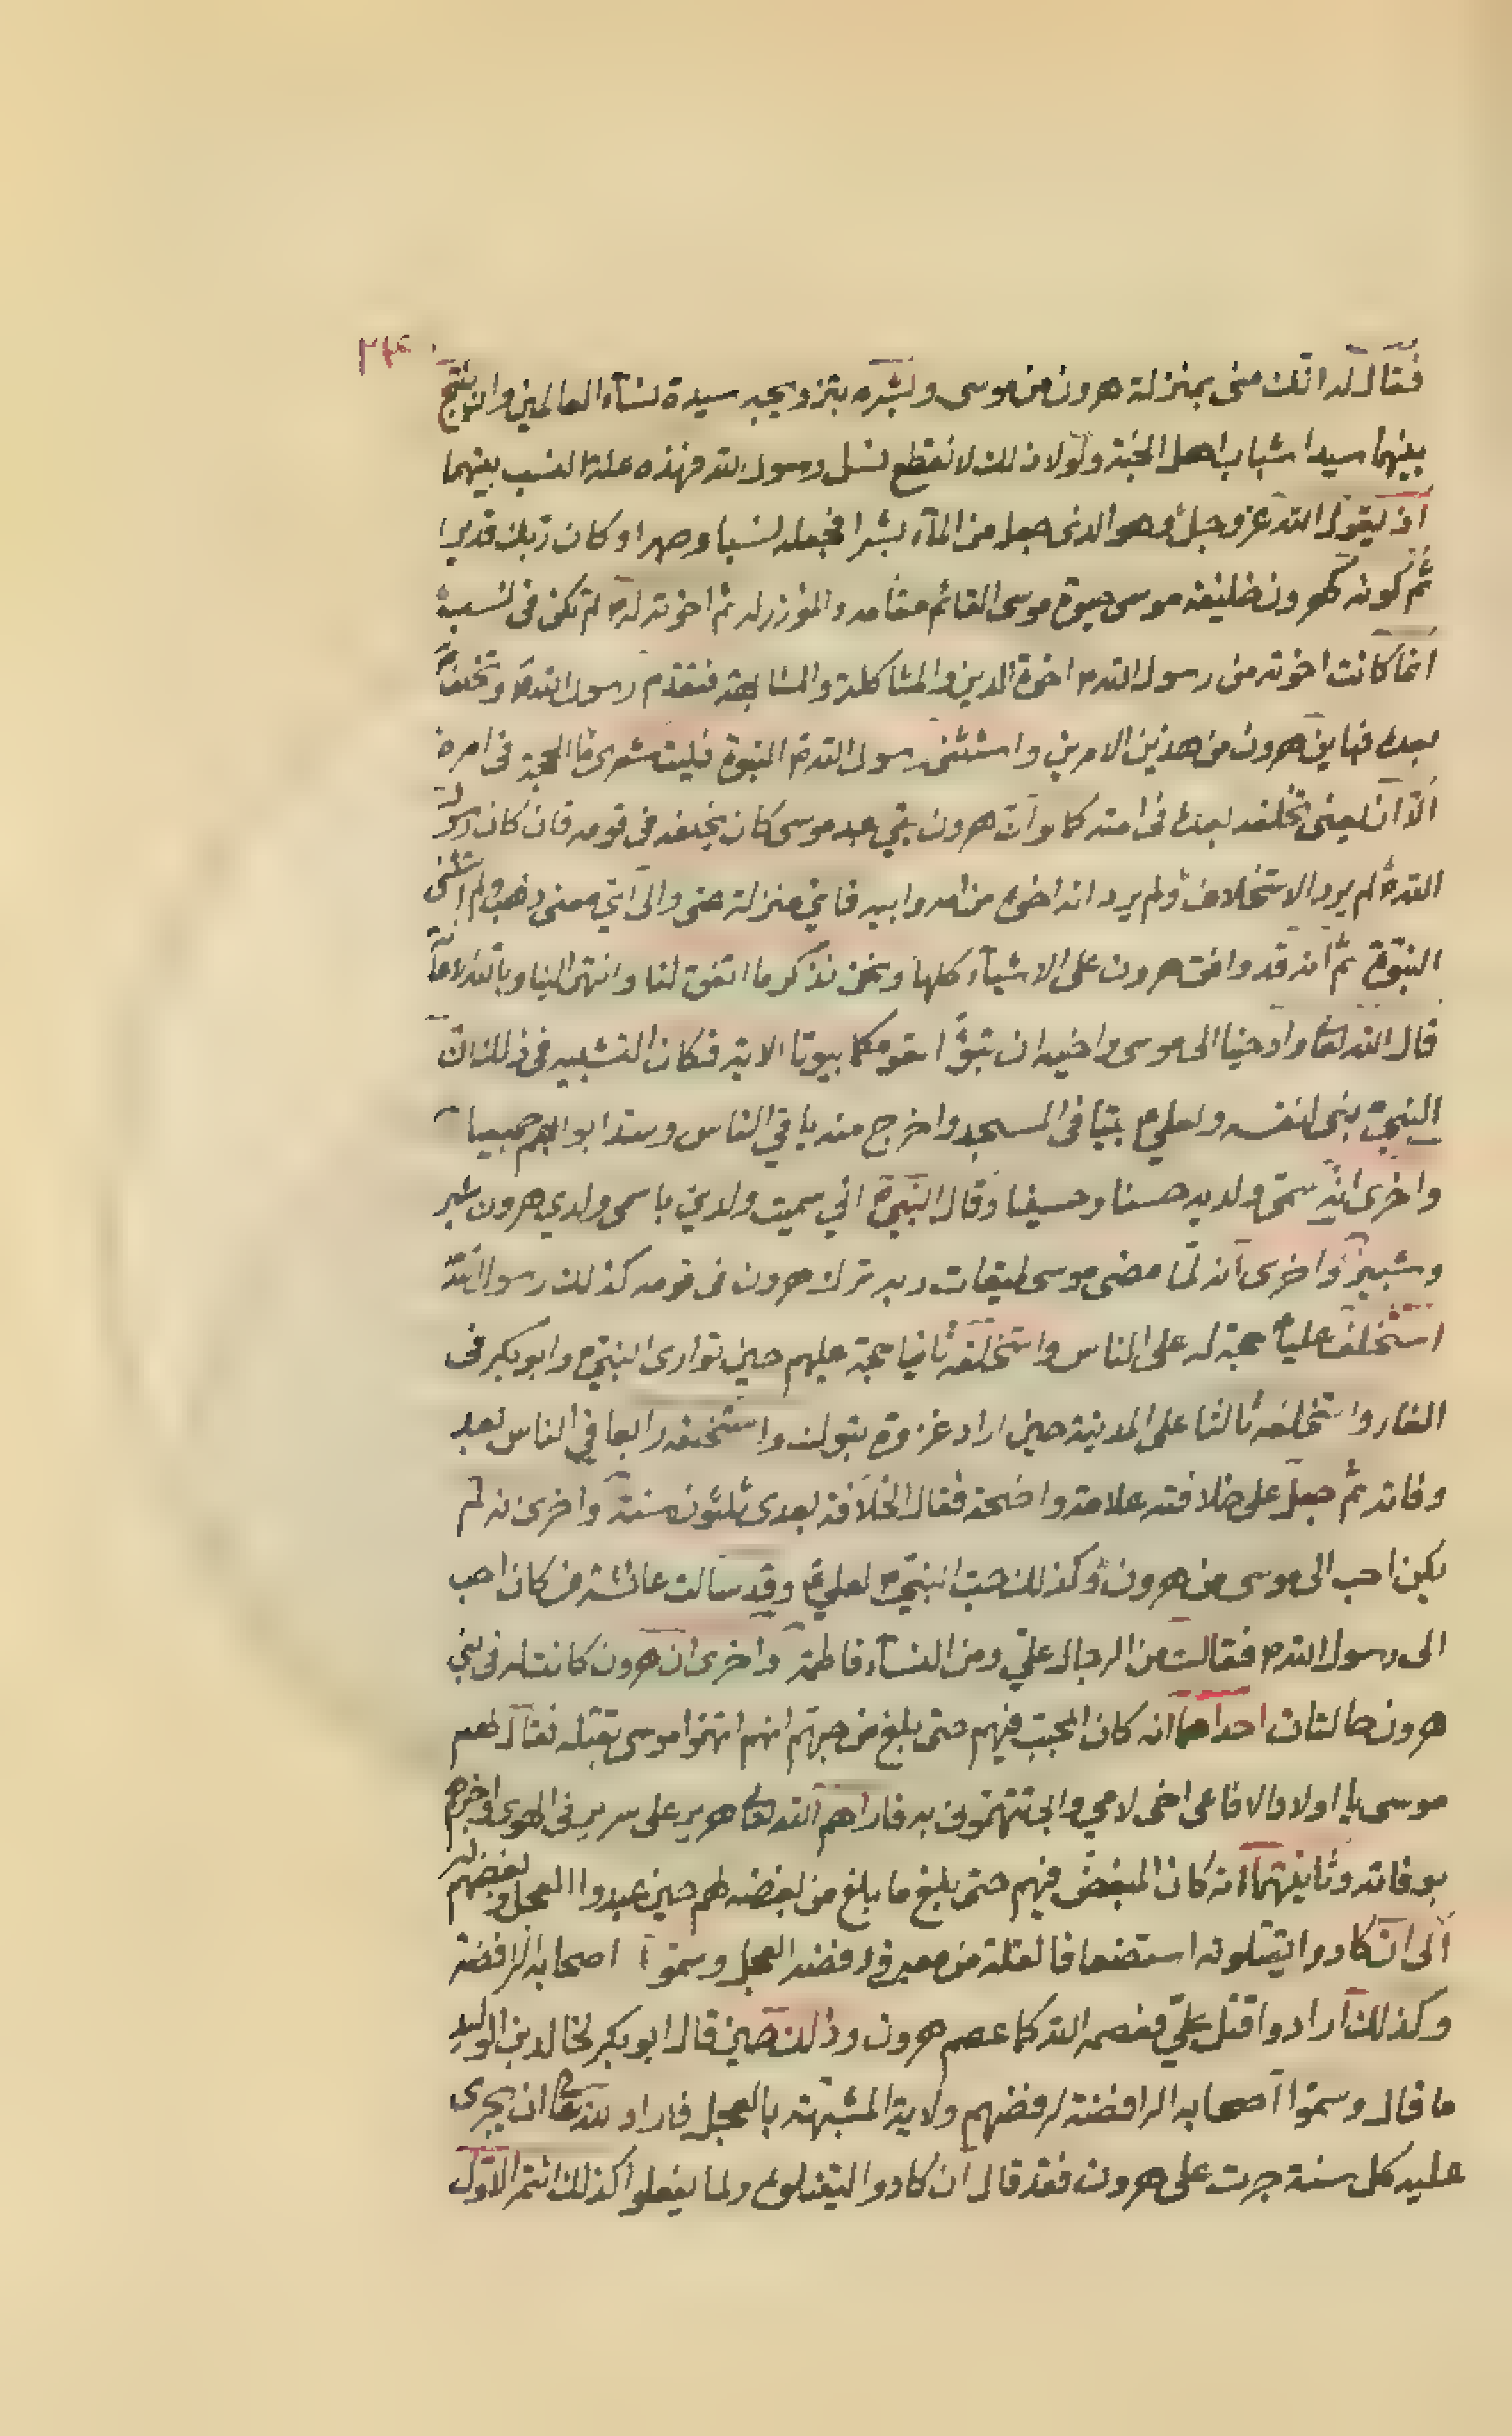 فقال له انك منى بمنزلة هرون من موسى وبشره بتزويجه سيدة نسآء العالمين وان ينتج
بينهما سيدا شباب اهل الجنة ولولا ذلك لانقطع نسل رسول الله فهذه علة النسب بينهما
اذ يقول الله عز وجل وهو الذى جعل من المآء بشرا فجعله نسبا وصهرا وكان ربك قديرا
ثم كونه كهرون خليفة موسى حيوة موسى القائم مقامه والموزر له ثم اخوته له لم تكن فى نسبة
انما كانت اخوته من رسول الله اخوة الدين والمشاكلة والمشابهة فتقدم رسول الله وتخلف
بعده فباين هرون من هذين الامرين واستثنى رسول الله النبوة فليت شعرى ما الحجة فى امره
الا ان يعنى تخلفه بعده فى امته كما وان هرون بقى بعد موسى كان يخلفه فى قومه فان كان رسول
الله لم يرد الاستخلاف ولم يرد انه اخوه من امه وابيه فاي منزلة عنى والى اي معنى ذهب ولم استثنى
النبوة ثم انه قد وافق هرون على الاشيآء كلها ونحن نذكر ما اتفق لنا وانتهى الينا وبالله
قال الله تعا واوحينا الى موسى واخيه ان تبوّا لقومكما بيوتا الاية فكان التشبيه فى ذلك ان
النبي بنى لنفسه ولعلي بيتا فى المسجد واخرج منه باقي الناس وسد ابوابهم جميعا
واخرى انه سمى ولديه حسنا وحسينا وقال النبي اني سميت ولدين باسمى ولدي هرون شبر
وشبير واخرى انه لما مضى موسى لميقات ربه ترك هرون فى قومه كذلك رسول الله
استخلف عليا حجة له على الناس واستخلفه ثانيا حجة عليهم حين توارى النبي وابو بكر فى
الغار واستخلفه ثالثا على المدينة حين اراد غزوة تبوك واستخلفه رابعا في الناس بعد
وفاته ثم جعل على خلافته علامة واضحة فقال الخلافة بعدى ثلثون سنة واخرى انه لم
يكن احب الى موسى من هرون وكذلك حب النبي لعلي وقد سالت عائشة من كان احب
الى رسول الله فقالت من الرجال علي ومن النسآء فاطمة واخرى ان هرون كانت له فى بني
هرون حالتان احداهما انه كان المحبب فيهم حتى بلغ من حبهم انهم اتهموا موسى بقتله فقال لهم
موسى يا اولاد الافاعى اخى لامي وابى تتهموني به فاراهم الله تعا هرون على سرير فى الهوى واخبرهم
بوفاته وثانيتهما انه كان المبغض فيهم حتى بلغ ما بلغ من بغضه لهم حين عبدوا العجل وبغضهم له
الى ان كادوا يقتلونه استضعافا لقلة من معه فى رفضه العجل وسموا اصحابه الرافضة
وكذلك ارادوا قتل علي فعصمه الله كما عصم هرون وذلك حين قال ابو بكر لخالد بن الوليد
ما قال وسموا اصحابه الرافضة لرفضهم ولاية المشبهة بالعجل فاراد الله تعا ان يجرى
عليه كل سنة جرت على هرون فقد قال ان كادوا ليقتلوه ولما يفعلوا كذلك ائتمر الاول